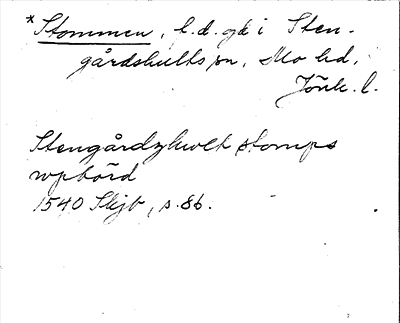 *Stommen, f.d. gd i Sten-
gårdshults sn, Mo hd,
Jönk. l.
Stengårdzhwlt stomps
wpbörd
1540 Skjb, s. 86.